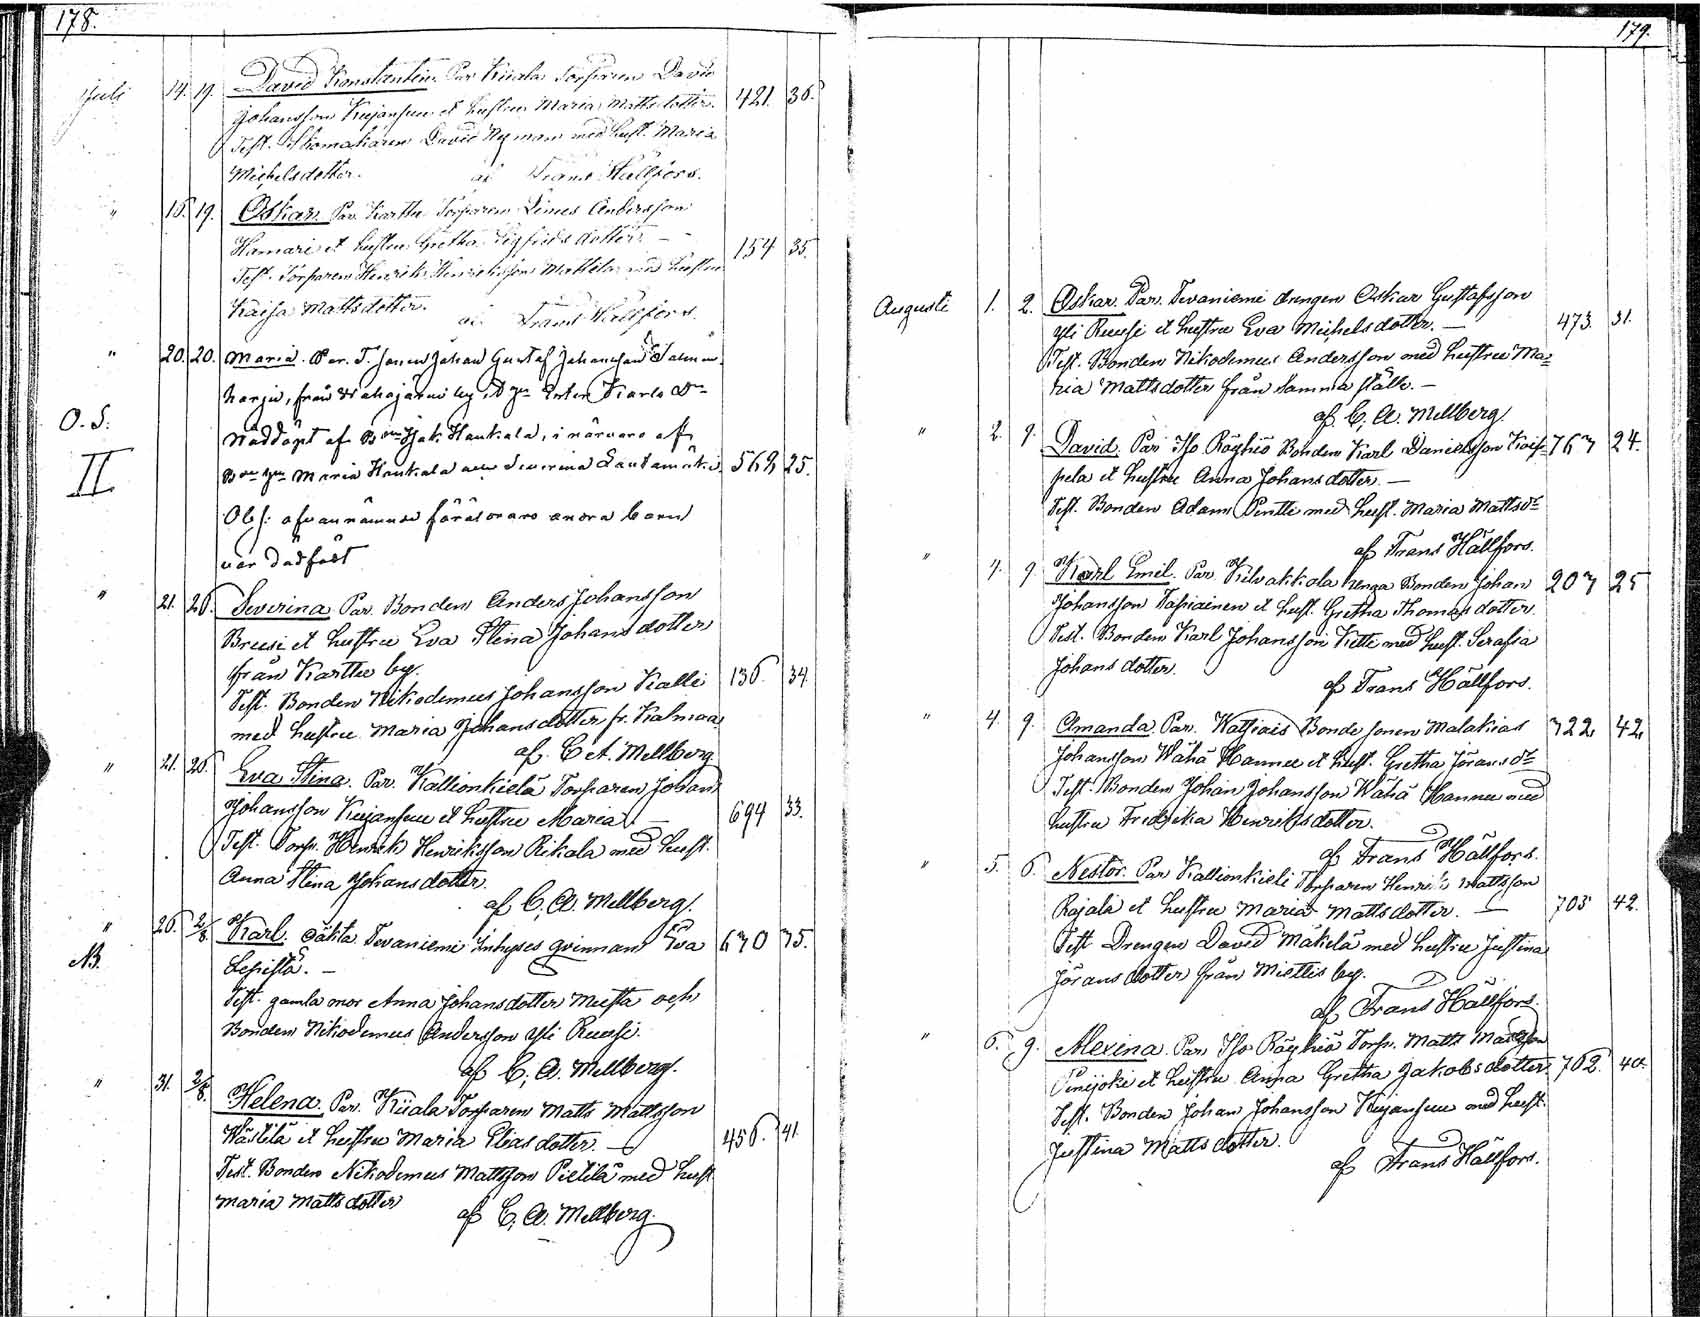 178.
Juli 14. 19. David Konstantin. Par. Kiiala Torparen David
Johansson Kujanpuu et hustru Maria Mattsdotter. 421. 36.
Test. Skomakaren David Nyman med hust. Maria
Michelsdotter. af Frans Hällfors.
" 15. 19. Oskar. Par. Karttu Torparen Linus Andersson
Hamari et hustru Gretha Sigfridsdotter. 154 35.
Test. Torparen Henrik Henriksson Mattila med hustru
Kaisa Mattsdotter. af Frans Hällfors.
" 20. 20. Maria. Par. T. Sonen Johan Gustaf Johansson
harju, från Wahajärvi by,
Nöddöpt af Hankala, i närvaro af
Maria Hankala Severina Lautamäki 569 25.
O. S.
II
Obs: ofvannämnde föräldrars andra barn
var dödfödt
" 21. 26. Severina Par. Bonden Anders Johansson
Breesi et hustru Eva Stina Johansdotter
från Karttu by.
Test. Bonden Nikodemus Johansson Kalli 136. 34.
med hustru Maria Johansdotter fr. Kalmaa
af C. A. Mellberg
" 21. 26. Eva Stina. Par. Kallionkielä Torparen Johan
Johansson Kujanpuu et hustru Maria. — 694 33.
Test. Torp. Henrik Henriksson Rikala med hust.
Anna Stina Johansdotter.
af C. A. Mellberg.
" 26. 2/8. Karl. oäkta Tevaniemi Inhyses qvinnan Eva 670 75.
NB. Lepistä. —
Test. gamla mor Anna Johansdotter Musta och
Bonden Nikodemus Andersson Yli Ruusi.
af C. A. Mellberg.
" 31. 2/8. Helena. Par. Kiiala Torparen Matts Mattsson
Wästilä et hustru Maria Eliasdotter. — 456. 41.
Test. Bonden Nikodemus Mattsson Pietilä med hust.
Maria Mattsdotter
af C. A. Mellberg.
179.
Augusti 1. 2. Oskar. Par. Tevaniemi drengen Oskar Gustafsson
Yli Ruusi et hustru Eva Michelsdotter. — 473. 31.
Test. Bonden Nikodemus Andersson med hustru Ma=
ria Mattsdotter från samma ställe. —
af C. A. Mellberg
" 2. 9. David. Par. Iso Röyhiö Bonden Karl Danielsson Koip= 767 24.
pela et hustru Anna Johansdotter. —
Test. Bonden Adam Pentti med hust. Maria Mattsdr
af Frans Hällfors.
" 4. 9 Karl Emil. Par. Kilvakkala henga Bonden Johan 207 25
Johansson Tapiainen et hust. Gretha Thomasdotter.
Test. Bonden Karl Johansson Kitti med hust. Serafia
Johansdotter.
af Frans Hällfors.
" 4. 9. Amanda. Par. Watsiais Bonde sonen Malakias 722 42
Johansson Wähä Hannu et hust. Gretha Jöransdr
Test. Bonden Johan Johansson Wähä Hannu med
hustru Fredrika Henriksdotter.
af Frans Hällfors.
" 5. 6. Nestor. Par. Kallionkieli Torparen Henrik Mattsson
Rajala et hustru Maria Mattsdotter. — 703 42.
Test Drengen David Mäkelä med hustru Justina
Jöransdotter från Miettis by.
af Frans Hällfors.
" 6. 9. Alexina. Par. Iso Röyhiö Torp. Matts Mattsson
Pinijoki et hustru Anna Gretha Jakobsdotter 762. 40.
Test. Bonden Johan Johansson Kujanpuu med hust.
Justina Mattsdotter.
af Frans Hällfors.